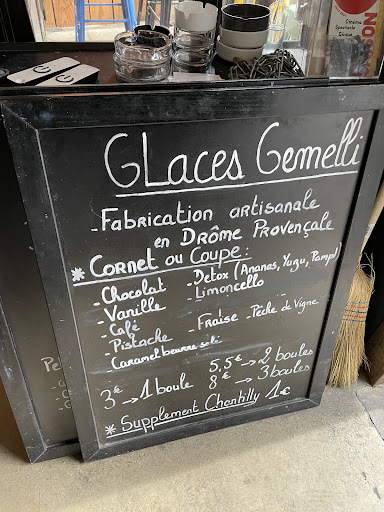 GLaces Gemelli
- Fabrication artisanale
en DRÔME PROVENÇALE
* CORNET ou COUPE :
- Chocolat - Detox (Ananas, Yuzu, Pampl)
- Vanille - Limoncello
- Café
- Pistache - Fraise - Pêche de Vigne
- Caramel beurre salé
3€ → 1 boule 5,5€ → 2 boules
8€ → 3 boules
* Supplement Chantilly 1€